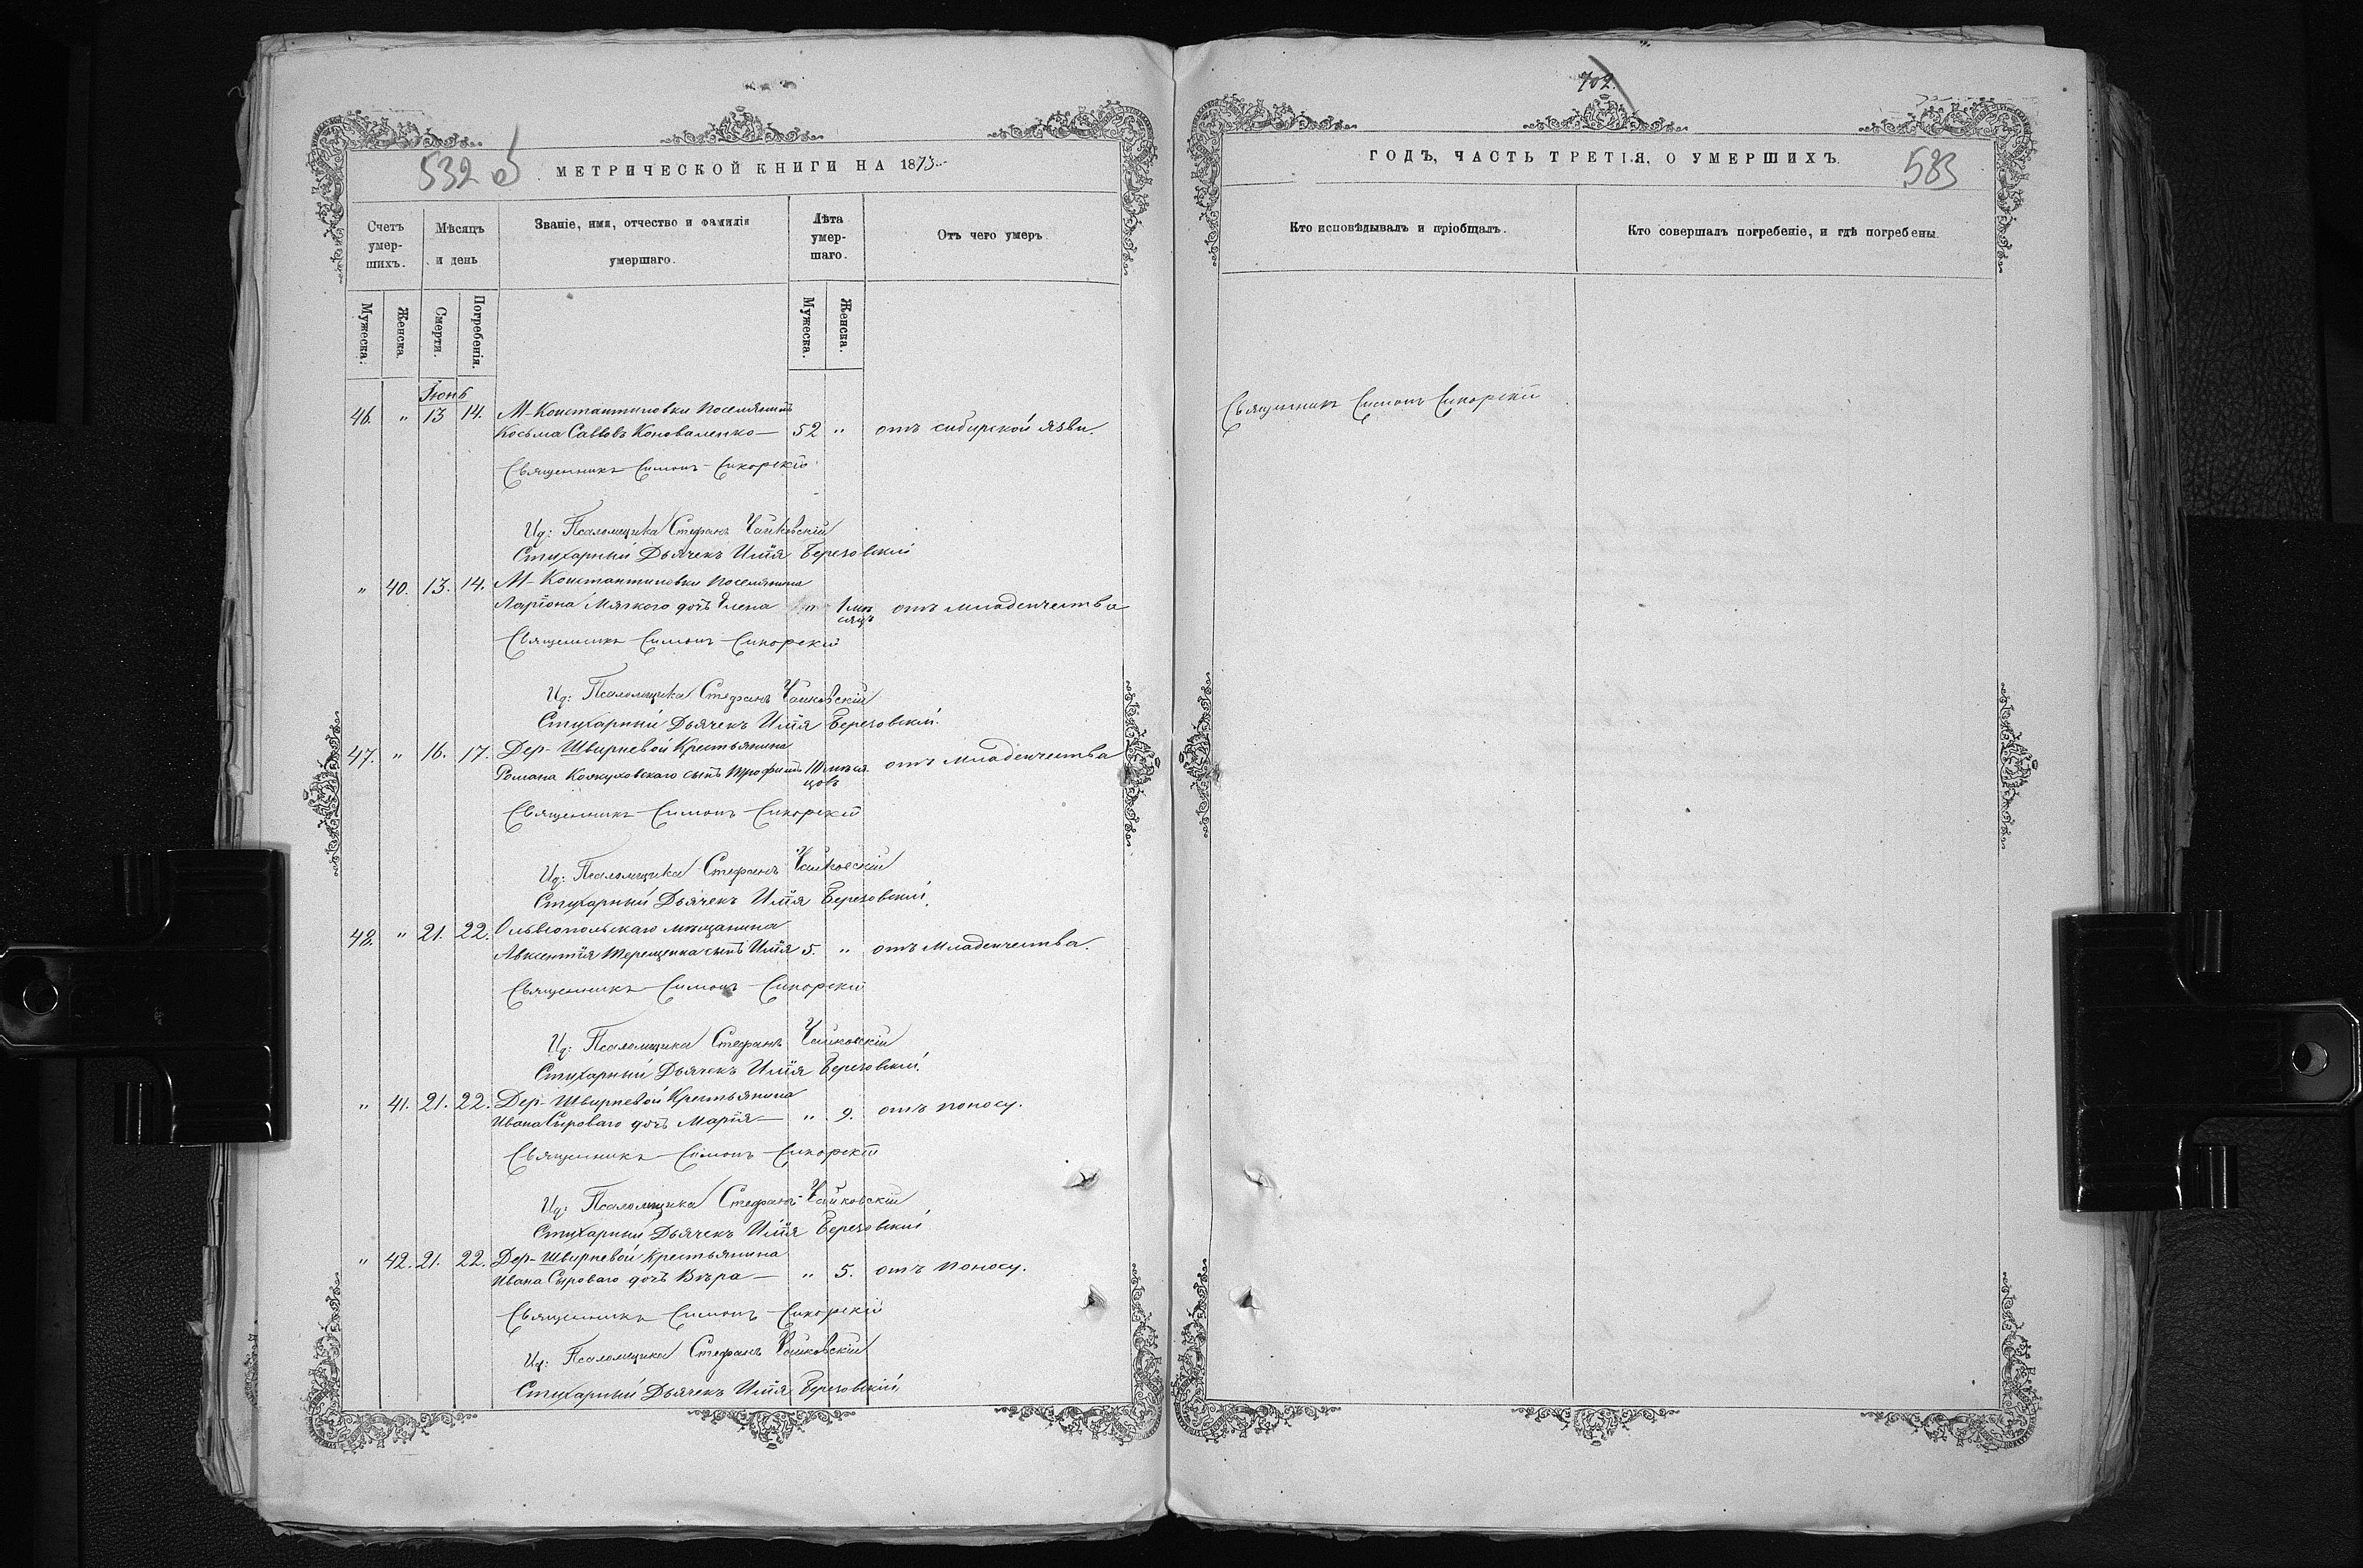 532 об
МЕТРИЧЕСКОЙ КНИГИ НА 1873
Счетъ умер-шихъ.
Мѣсяцъ и день
Званіе, имя, отчество и фамилія умершаго.
Лѣта умер-шаго.
Отъ чего умеръ
Мужеска.
Женска.
Смерти.
Погребенія.
Мужеска.
Женска.
Іюнь
46. " 13 14. М-Константиновки поселянинъ
Косьма Саввовъ Коноваленко — 52 " отъ сибирской язвы.
Священникъ Симонъ Сикорскій
Ид: Псаломщика Стефанъ Чайковскій
Стихарный Дьячекъ Илія Березовскій
" 40. 13. 14. М-Константиновки поселянина
Ларіона Мягкого дочь Елена " 1 мѣ отъ младенчества
сяцъ
Священникъ Симонъ Сикорскій
Ид: Псаломщика Стефанъ Чайковскій
Стихарный Дьячекъ Илія Березовскій.
47. " 16. 17. Дер- Швырневой Крестьянина
Романа сынъ Трофимъ мѣся отъ младенчества
цовъ
Священникъ Симонъ Сикорскій
Ид: Псаломщика Стефанъ Чайковскій
Стихарный Дьячекъ Илія Березовскій.
48. " 21. 22. Ольвіопольскаго мѣщанина
Авксентія Терещенка сынъ Илія 5. " отъ младенчества.
Священникъ Симонъ Сикорскій
Ид: Псаломщика Стефанъ Чайковскій
Стихарный Дьячекъ Илія Березовскій.
" 41. 21. 22. Дер- Швырневой Крестьянина
Ивана Сыроваго дочь Марія — " 9. отъ поносу.
Священникъ Симонъ Сикорскій
Ид: Псаломщика Стефанъ Чайковскій
Стихарный Дьячекъ Илія Березовскій
" 42. 21. 22. Дер- Швырневой Крестьянина
Ивана Сыроваго дочь Вѣра — " 5. отъ поносу.
Священникъ Симонъ Сикорскій
Ид: Псаломщика Стефанъ Чайковскій
Стихарный Дьячекъ Илія Березовскій.
702.
ГОДЪ, ЧАСТЬ ТРЕТІЯ, О УМЕРШИХЪ.
533
Кто исповѣдывалъ и пріобщалъ.
Кто совершалъ погребеніе, и гдѣ погребены.
Священникъ Симонъ Сикорскій